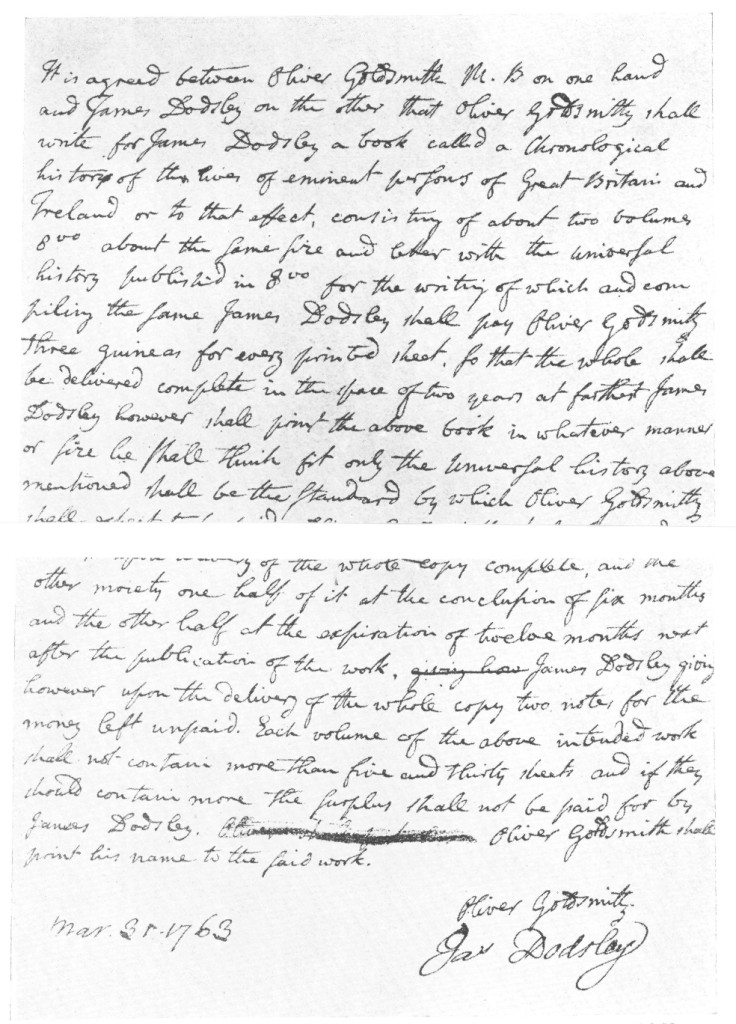 It is agreed between Oliver Goldsmith M. B on one hand
and James Dodsley on the other that Oliver Goldsmith shall
write for James Dodsley a book called a Chronological
history of the lives of eminent persons of Great Britain and
Ireland or to that effect, consisting of about two volumes
8vo about the same size and letter with the universal
history published in 8vo for the writing of which and com
piling the same James Dodsley shall pay Oliver Goldsmith
three guineas for every printed sheet, so that the whole shall
be delivered complete in the space of two years at farthest James
Dodsley however shall print the above book in whatever manner
or size he shall think fit only the Universal history above
mentioned shall be the standard by which Oliver Goldsmith
shall expect to be paid.
upon delivery of the whole copy complete, and the
other moiety one half of it at the conclusion of six months
and the other half at the expiration of twelve months next
after the publication of the work, giving how James Dodsley giving
however upon the delivery of the whole copy two notes for the
money left unpaid. Each volume of the above intended work
shall not contain more than five and thirty sheets and if they
should contain more the surplus shall not be paid for by
James Dodsley. Oliver Goldsmith shall
print his name to the said work.
Oliver Goldsmith
Mar. 31. 1763
Jas Dodsley